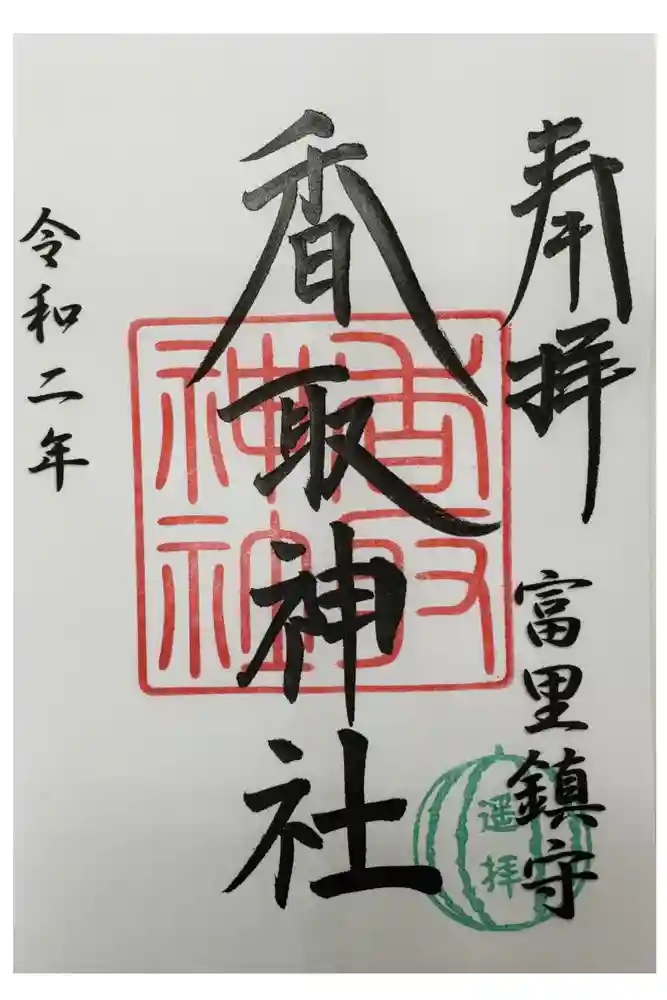 奉拝
富里鎮守
香取神社
香取
神社
令和二年
遥拝